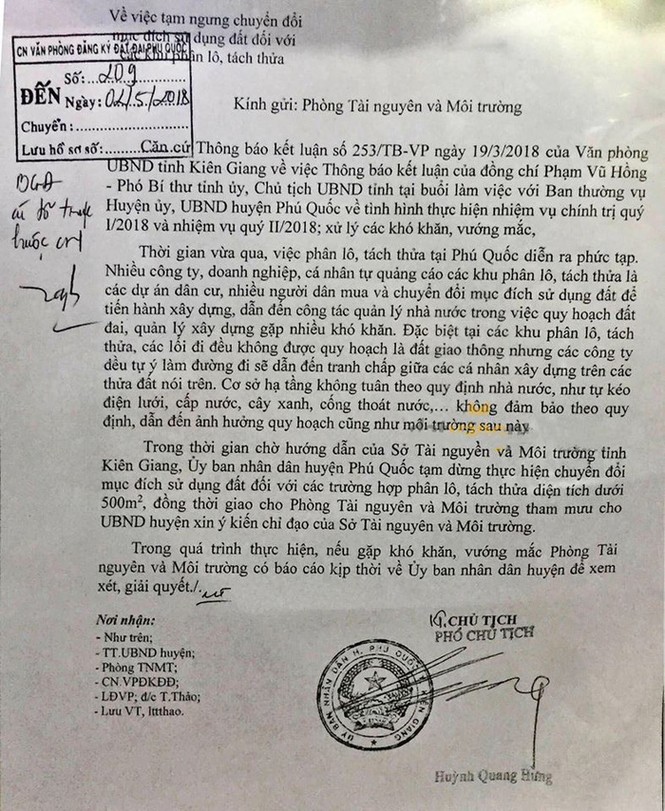 Về việc tạm ngưng chuyển đổi
mục đích sử dụng đất đối với
các khu phân lô, tách thửa
CN VĂN PHÒNG ĐĂNG KÝ ĐẤT ĐAI PHÚ QUỐC
ĐẾN
Số:...209
Ngày: 04/5/2018
Chuyển:
Lưu hồ sơ số:
Kính gửi: Phòng Tài nguyên và Môi trường
Căn cứ Thông báo kết luận số 253/TB-VP ngày 19/3/2018 của Văn phòng
UBND tỉnh Kiên Giang về việc Thông báo kết luận của đồng chí Phạm Vũ Hồng
- Phó Bí thư tỉnh ủy, Chủ tịch UBND tỉnh tại buổi làm việc với Ban thường vụ
Huyện ủy, UBND huyện Phú Quốc về tình hình thực hiện nhiệm vụ chính trị quý
I/2018 và nhiệm vụ quý II/2018; xử lý các khó khăn, vướng mắc,
Thời gian vừa qua, việc phân lô, tách thửa tại Phú Quốc diễn ra phức tạp.
Nhiều công ty, doanh nghiệp, cá nhân tự quảng cáo các khu phân lô, tách thửa là
các dự án dân cư, nhiều người dân mua và chuyển đổi mục đích sử dụng đất để
tiến hành xây dựng, dẫn đến công tác quản lý nhà nước trong việc quy hoạch đất
đai, quản lý xây dựng gặp nhiều khó khăn. Đặc biệt tại các khu phân lô, tách
thửa, các lối đi đều không được quy hoạch là đất giao thông nhưng các công ty
đều tự ý làm đường đi sẽ dẫn đến tranh chấp giữa các cá nhân xây dựng trên các
thửa đất nói trên. Cơ sở hạ tầng không tuân theo quy định nhà nước, như tự kéo
điện lưới, cấp nước, cây xanh, cống thoát nước,... không đảm bảo theo quy
định, dẫn đến ảnh hưởng quy hoạch cũng như môi trường sau này
Trong thời gian chờ hướng dẫn của Sở Tài nguyên và Môi trường tỉnh
Kiên Giang, Ủy ban nhân dân huyện Phú Quốc tạm dừng thực hiện chuyển đổi
mục đích sử dụng đất đối với các trường hợp phân lô, tách thửa diện tích dưới
500m², đồng thời giao cho Phòng Tài nguyên và Môi trường tham mưu cho
UBND huyện xin ý kiến chỉ đạo của Sở Tài nguyên và Môi trường.
Trong quá trình thực hiện, nếu gặp khó khăn, vướng mắc Phòng Tài
nguyên và Môi trường có báo cáo kịp thời về Ủy ban nhân dân huyện để xem
xét, giải quyết./.
Nơi nhận:
- Như trên;
- TT.UBND huyện;
- Phòng TNMT;
- CN.VPĐKĐĐ;
- LĐVP; đ/c T.Thảo;
- Lưu VT, lttthao.
KT. CHỦ TỊCH
PHÓ CHỦ TỊCH
ỦY BAN NHÂN DÂN H. PHÚ QUỐC T. KIÊN GIANG
Huỳnh Quang Hưng